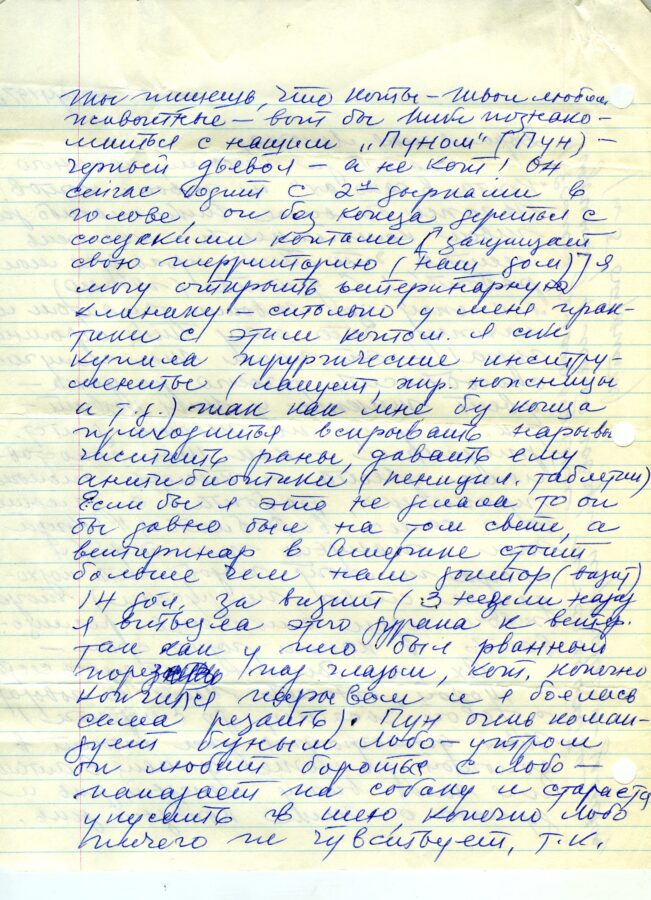 Ты пишешь, что коты – твои любом
животные – вот бы тибе познако-
миться с нашим „Пуном" (Пун) –
черный дьявол – а не кот! Он
сейчас ходит с 2мя дырками в
голове, он без конца дерется с
соседскими котами (защищает
свою территорию (наш дом)) я
могу открыть ветеринарную
клинику – столько у меня прак-
тики с этим котом. Я
купила хирургические инстру-
менты (ланцет, хир. ножницы
и т.д.) так как мне без конца
приходиться вскрывать нарывы
чистить раны, давать ему
антибиотики (пеницил. таблетки)
Если бы я это не делала то он
бы давно был на том свете, а
ветеринар в Америке стоит
больше чем наш доктор (визит)
14 дол. за визит (3 недели назад
я этого дурака к ветер.
так как у него был рванный
порез под глазом, кот. конечно
кончился нарывом и я боялась
сама резать). Пун очень коман-
дует Лобо – утром
он любит бороться с Лобо –
нападает на собаку и старается
укусить в шею, конечно Лобо
ничего не чувствует, т.к.